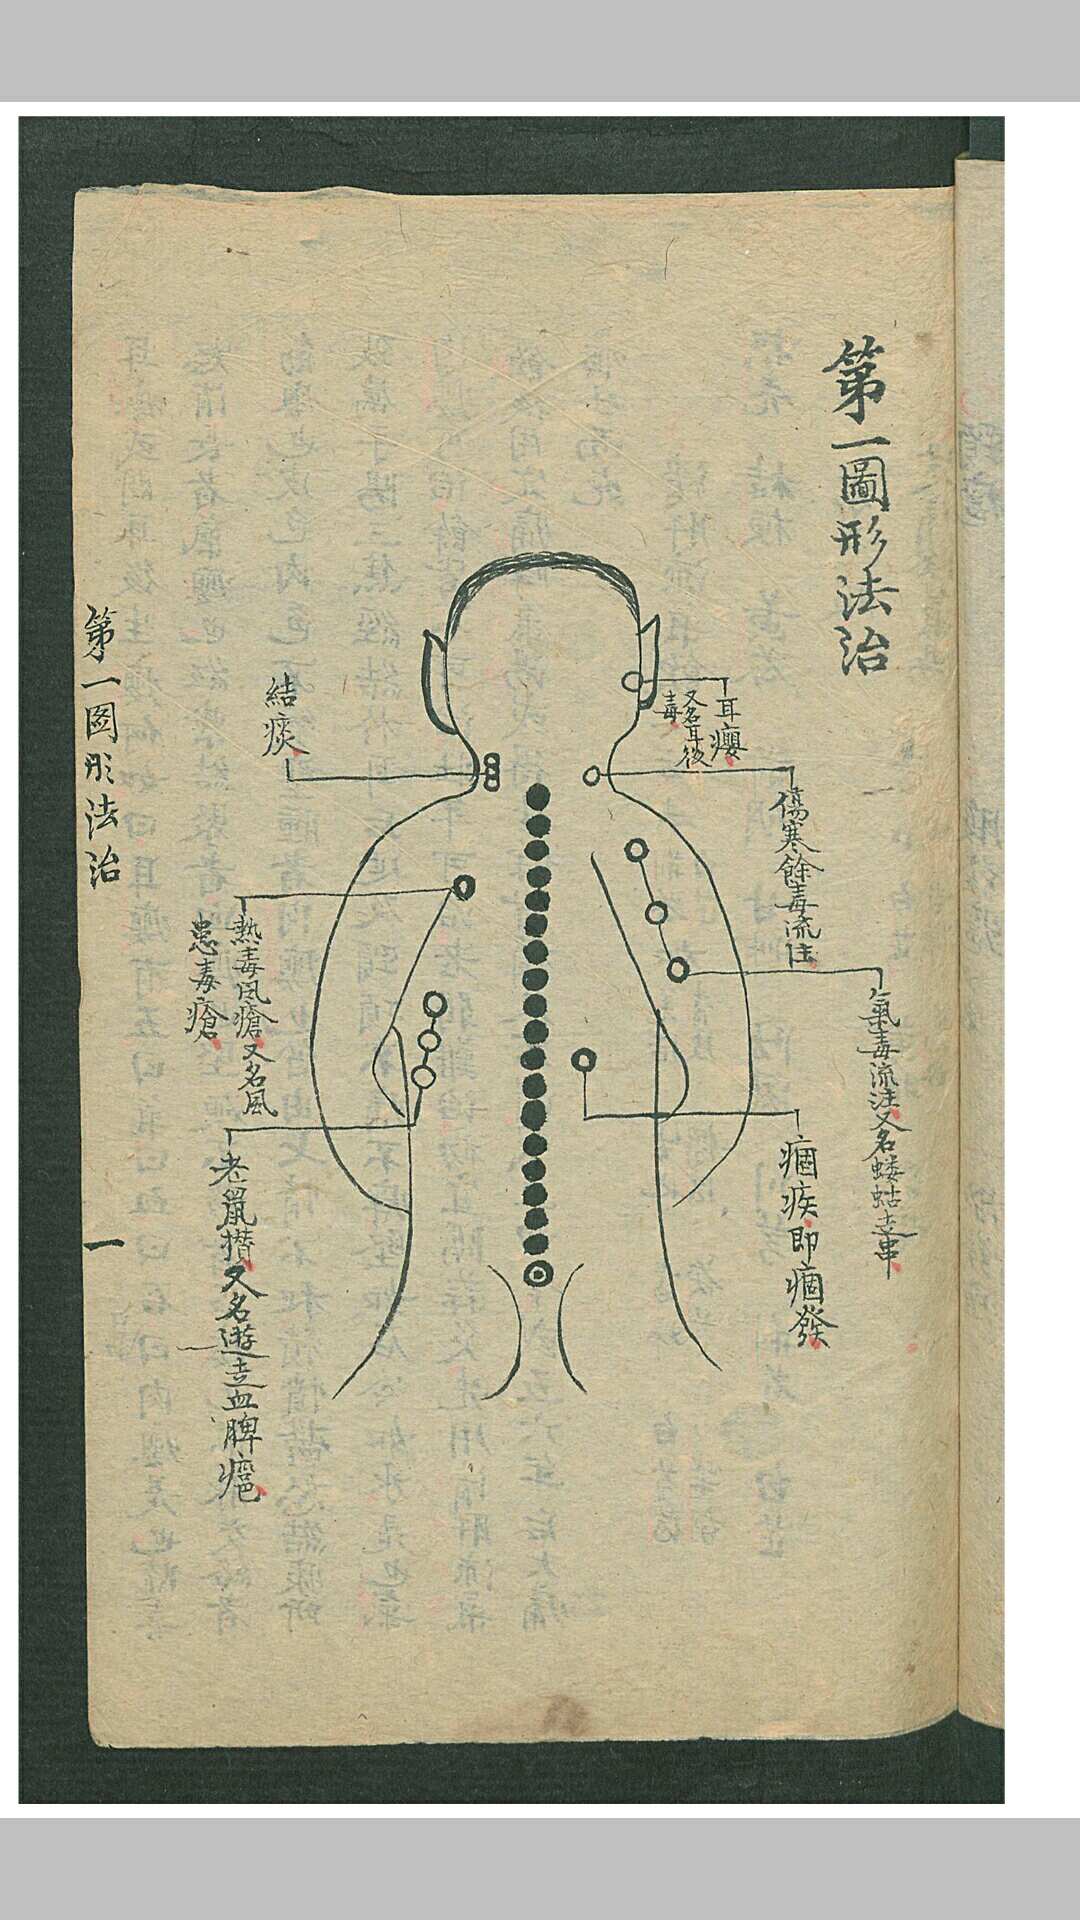 第一圖形法治
耳癭
又名耳後
毒
傷寒餘毒流注
氣毒流注又名螻蛄走串
痼疾即痼發
結痰
熱毒風瘡又名風
患毒瘡
老鼠攢又名遊走血脾
第一圖形法治
一